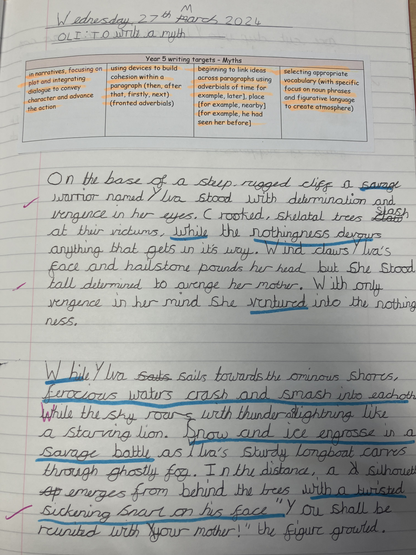 Wednesday, 27th March 2024
OLI: To write a myth
Year 5 writing targets – Myths
in narratives, focusing on plot and integrating dialogue to convey character and advance the action
using devices to build cohesion within a paragraph (then, after that, firstly, next) (fronted adverbials)
beginning to link ideas across paragraphs using adverbials of time for example, later], place [for example, nearby] [for example, he had seen her before]
selecting appropriate vocabulary (with specific focus on noun phrases and figurative language to create atmosphere)
On the base of a steep rugged cliff a savage
warrior named Ylva stood with determination and
vengence in her eyes. Crooked, skeletal trees slash
at their victums, while the nothingness devours
anything that gets in it's way. Wind claws Ylva's
face and hailstone pounds her head but she stood
tall determined to avenge her mother. With only
vengence in her mind she ventured into the nothing
ness.
While Ylva sails sails towards the ominous shores,
ferocious waters crash and smash into eachoth
While the sky roars with thunder lightning like
a starving lion. Snow and ice engrosse in a
savage battle as Ylva's sturdy longboat carves
through ghostly fog. In the distance, a silhouett
emerges from behind the trees with a twisted
sickening snarl on his face "You shall be
reunited with your mother!" the figure growled.